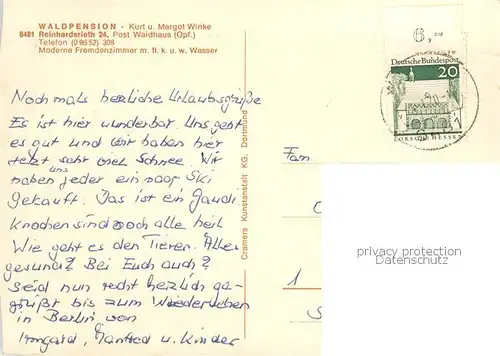 WALDPENSION - Kurt u. Margot Winke
8481 Reinhardsrieth 24, Post Waidhaus (Opf.)
Telefon (0 96 52) 308
Moderne Fremdenzimmer m. fl. k. u. w. Wasser
Nochmals herzliche Urlaubsgrüße
Es ist hier wunderbar. Uns geht
es gut und wir haben hier
jetzt sehr viel Schnee. Wir
haben uns jeder ein paar Ski
gekauft. Das ist ein Gaudi
Knochen sind noch alle heil
Wie geht es den Tieren. Alles
gesund? Bei Euch auch?
Seid nun recht herzlich ge-
grüßt bis zum Wiedersehen
in Berlin von
Irmgard, Manfred u. Kinder
Cramers Kunstanstalt KG. Dortmund
6,
Deutsche Bundespost
20
LORSCH/HESSEN
Fam
1
privacy protection
Datenschutz